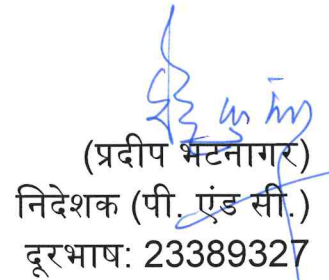 (प्रदीप भटनागर)
निदेशक (पी. एंड सी.)
दूरभाष: 23389327